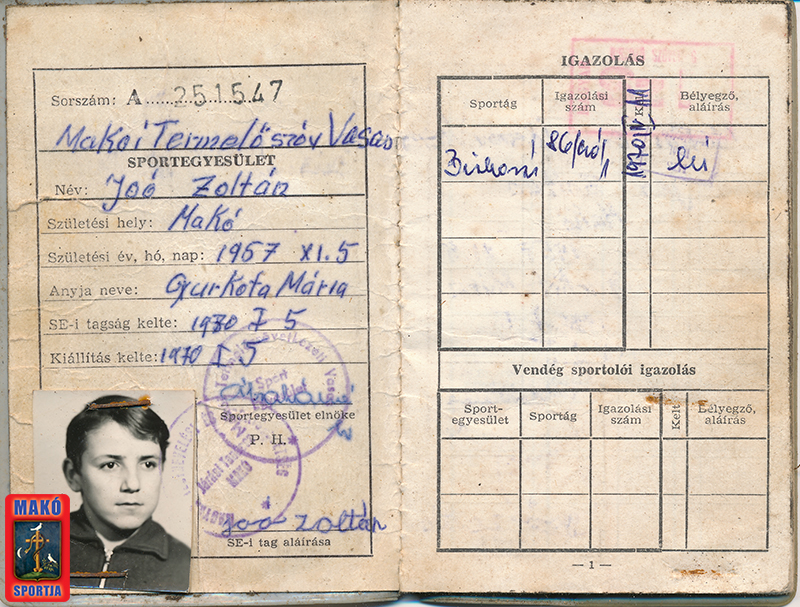 Sorszám: A 251547
Makói Termelőszöv Vasas
SPORTEGYESÜLET
Név: Joó Zoltán
Születési hely: Makó
Születési év, hó, nap: 1957 XI. 5
Anyja neve: Gyurkofa Mária
SE-i tagság kelte: 1970 I 5
Kiállítás kelte: 1970 I 5
Sportegyesület elnöke
P. H.
Joó Zoltán
SE-i tag aláírása
MAKÓ
SPORTJA
IGAZOLÁS
Sportág
Igazolási szám
Kelt
Bélyegző, aláírás
Birkózó
1970 IV
Vendég sportolói igazolás
Sport-egyesület
Sportág
Igazolási szám
Kelt
Bélyegző, aláírás
— 1 —